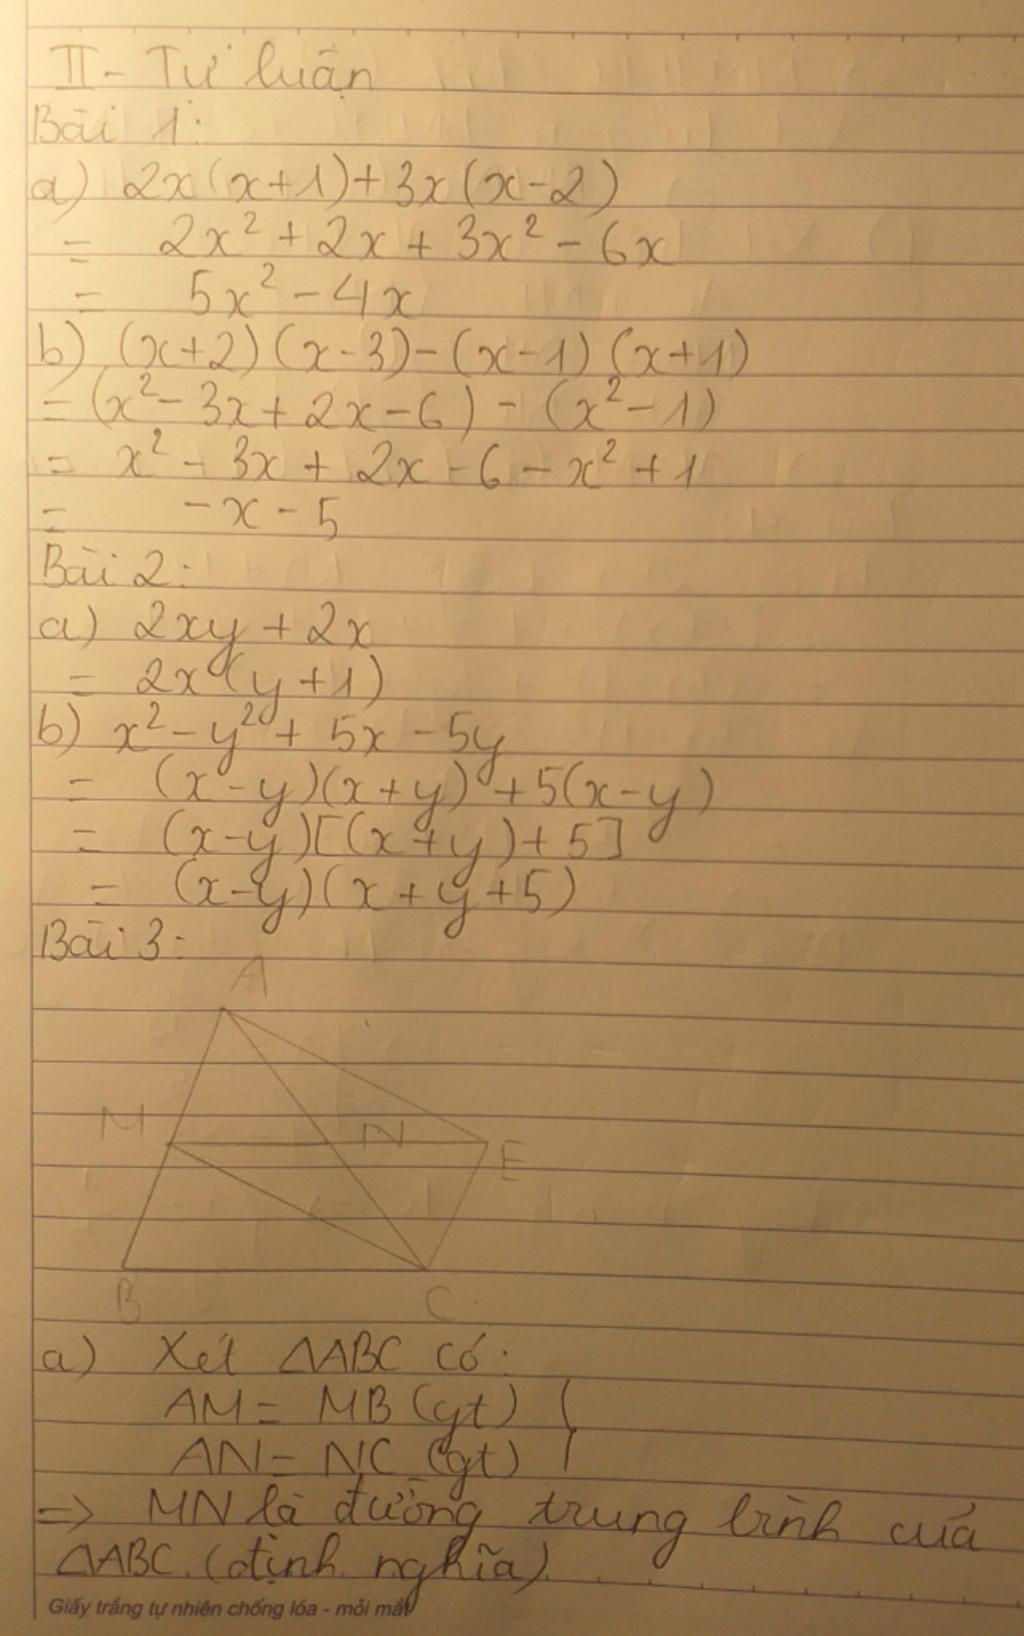 II - Tự luận
Bài 1:
a) 2x(x+1)+3x(x-2)
= 2x² + 2x + 3x² - 6x
= 5x² - 4x
b) (x+2)(x-3)-(x-1)(x+1)
= (x² - 3x + 2x - 6) - (x² - 1)
= x² - 3x + 2x - 6 - x² + 1
= -x - 5
Bài 2:
a) 2xy + 2x
= 2x(y+1)
b) x² - y² + 5x - 5y
= (x-y)(x+y) + 5(x-y)
= (x-y)[(x+y)+5]
= (x-y)(x+y+5)
Bài 3:
A
M N E
B C
a) Xét △ABC có:
AM = MB (gt)
AN = NC (gt)
=> MN là đường trung bình của
△ABC. (định nghĩa)
Giấy trắng tự nhiên chống lóa - mỏi mắt